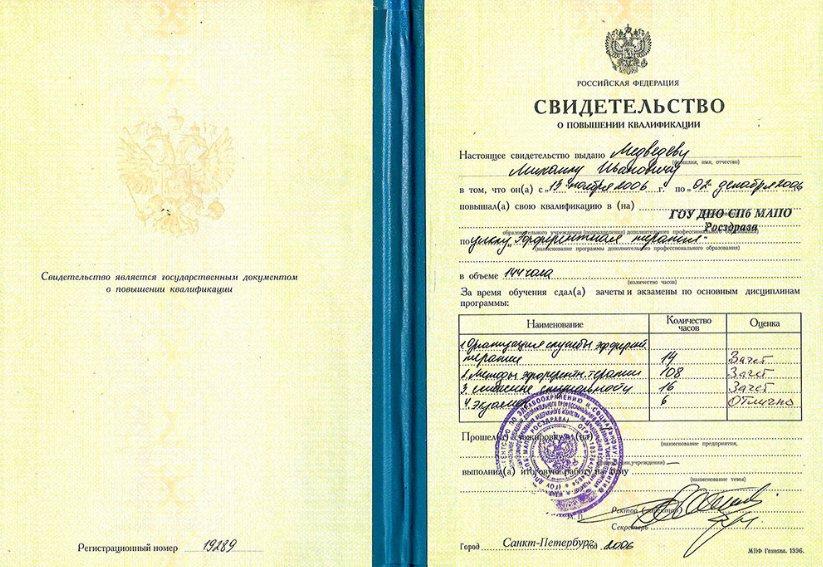 Свидетельство является государственным документом
о повышении квалификации
Регистрационный номер 19289
РОССИЙСКАЯ ФЕДЕРАЦИЯ
СВИДЕТЕЛЬСТВО
О ПОВЫШЕНИИ КВАЛИФИКАЦИИ
Настоящее свидетельство выдано Медведеву
(фамилия, имя, отчество)
Михаилу Ивановичу
в том, что он(а) с „13" ноября 2006 г. по „02" декабря 2006
повышал(а) свою квалификацию в (на) ГОУ ДПО СПб МАПО
Росздрава
образовательного учреждения (подразделения) дополнительного профессионального образования)
по циклу „Эфферентная терапия"
(наименование программы дополнительного профессионального образования)
в объеме 144 часа
(количество часов)
За время обучения сдал(а) зачеты и экзамены по основным дисциплинам
программы:
Наименование Количество часов Оценка
1. Организация службы эфферентн.
терапии 14 Зачет
2. Методы эфферентн. терапии 108 Зачет
3. смежные специальности 16 Зачет
4. экзамен 6 Отлично
Прошел(а) стажировку в (на)
(наименование предприятия,
учреждения)
выполнил(а) итоговую работу на тему
(наименование темы)
Ректор (директор)
Секретарь
М.П.
Город Санкт-Петербург год 2006
МПФ Гознака. 1996.